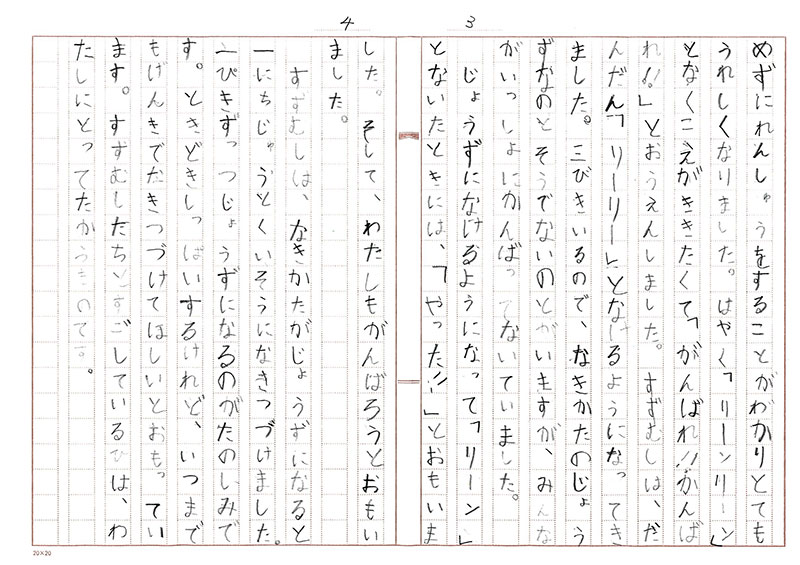 3
めずにれんしゅうをすることがわかりとても
うれしくなりました。はやく「リーンリーン」
となくこえがききたくて「がんばれ!!がんば
れ!!」とおうえんしました。すずむしは、だ
んだん「リーリー」となけるようになってき
ました。三びきいるので、なきかたのじょう
ずなのとそうでないのとがいますが、みんな
がいっしょにがんばってないていました。
じょうずになけるようになって「リーン」
とないたときには、「やった!!」とおもいま
4
した。そして、わたしもがんばろうとおもい
ました。
すずむしは、なきかたがじょうずになると
一にちじゅうとくいそうになきつづけました。
一ぴきずつじょうずになるのがたのしみで
す。ときどきしっぱいするけれど、いつまで
もげんきでなきつづけてほしいとおもってい
ます。すずむしたちとすごしているひは、わ
たしにとってたからものです。
20×20